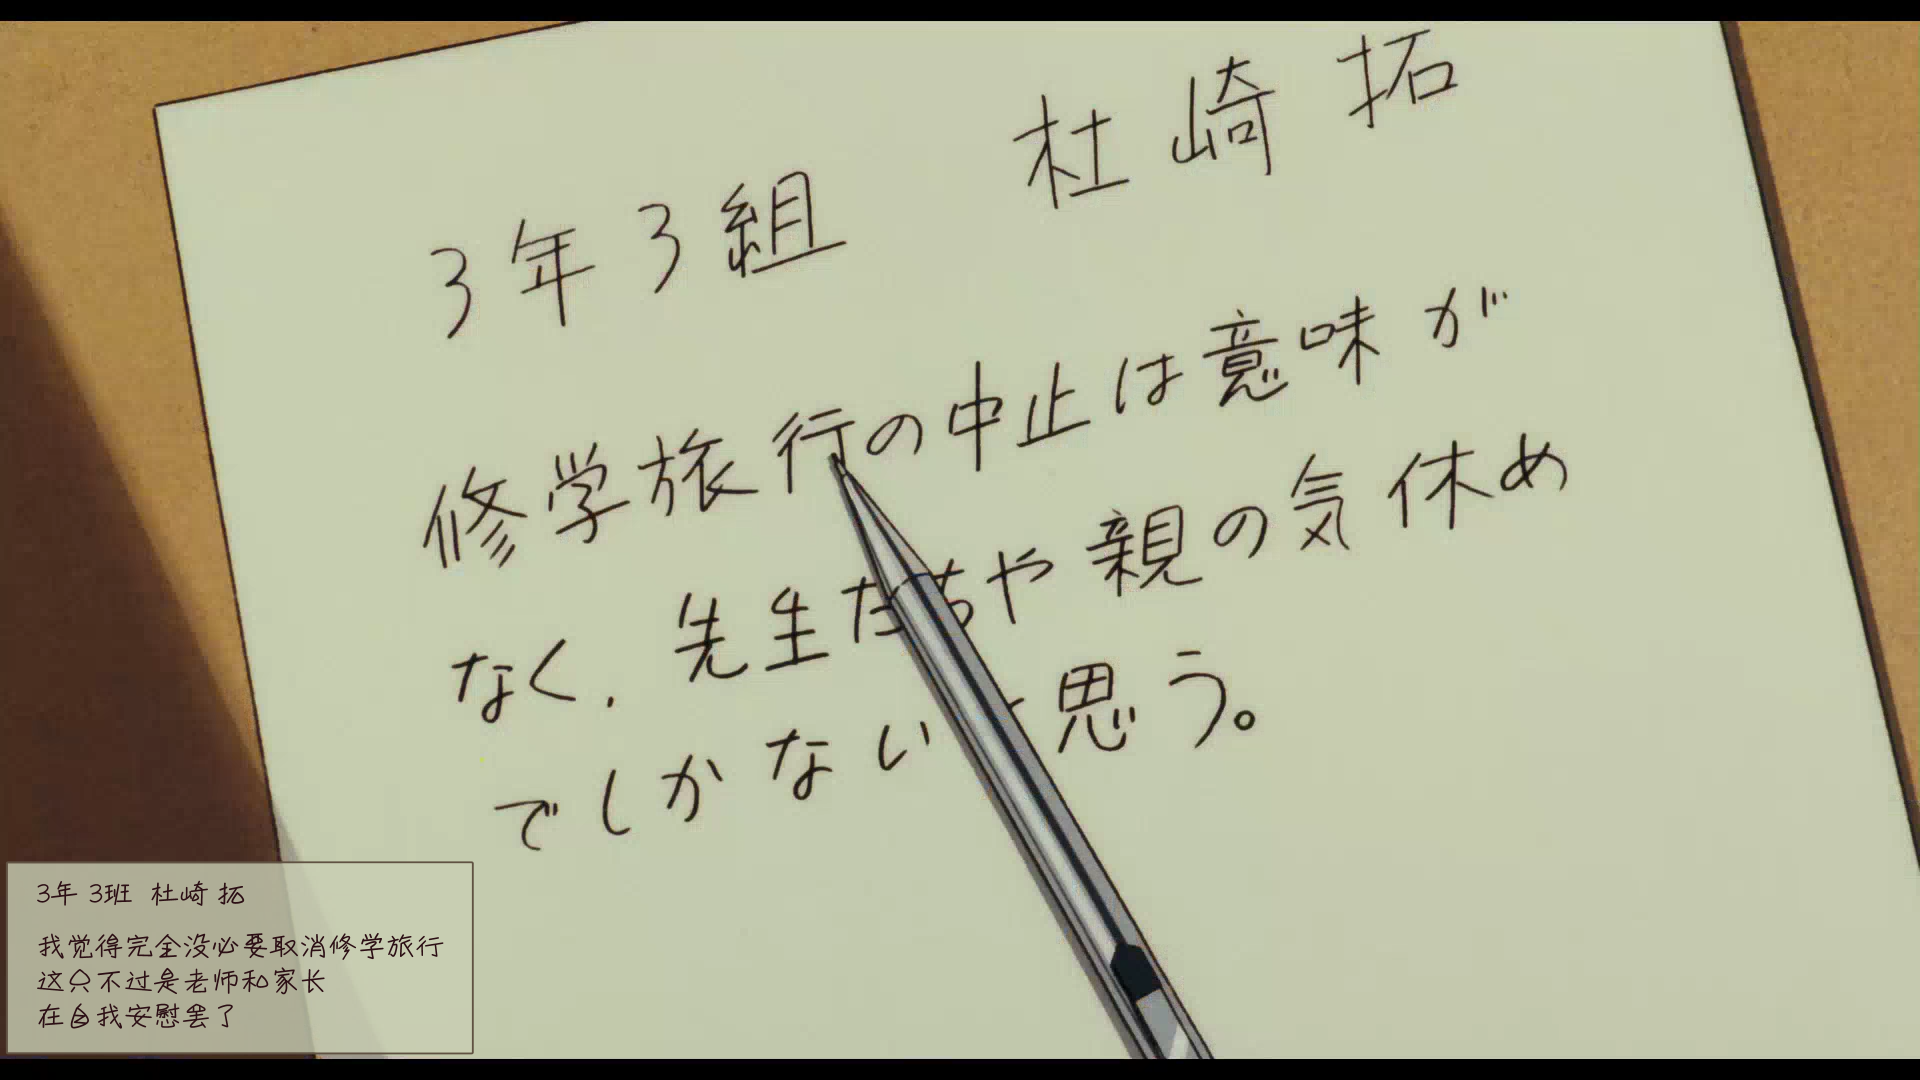 3年3組 杜崎拓
修学旅行の中止は意味が
なく、先生たちや親の気休め
でしかない 思う。
3年 3班 杜崎 拓
我觉得完全没必要取消修学旅行
这只不过是老师和家长
在自我安慰罢了